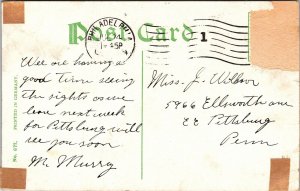 Post Card
PHILADELPHIA
1
Wee are having a
good time seeing
the sights on we
leave next week
for Pittsburg will
see you soon
M. Murry
Miss. J. Wilson
5966 Ellsworth ave
EE Pittsburg
Penn
PRINTED IN GERMANY